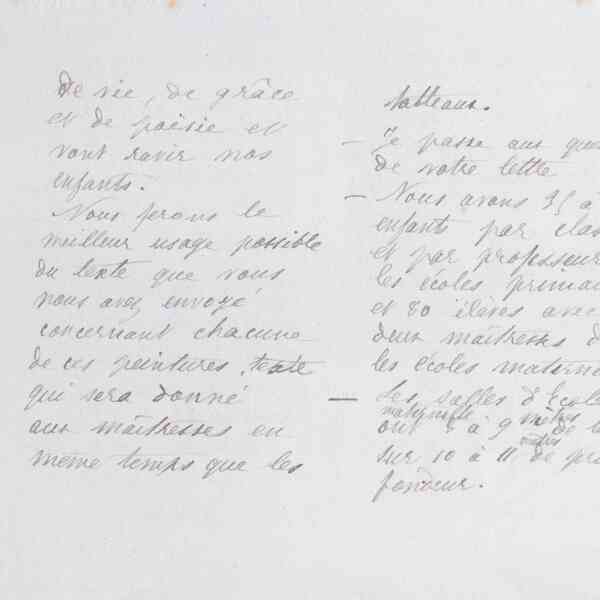 de vie, de grâce
et de poésie et
vont ravir nos
enfants.
Nous ferons le
meilleur usage possible
du texte que vous
nous avez envoyé
concernant chacune
de ces peintures, texte
qui sera donné
aux maîtresses en
même temps que les
tableaux.
— Je passe aux ques
de votre lettre
— Nous avons 35 à
enfants par clas
et par professeur
les écoles primai
et 80 élèves avec
deux maîtresses d
les écoles materne
— Les salles d'École
maternelle mètres
ont à 9 de l
mètres
sur 10 à 11 de pro
fondeur.